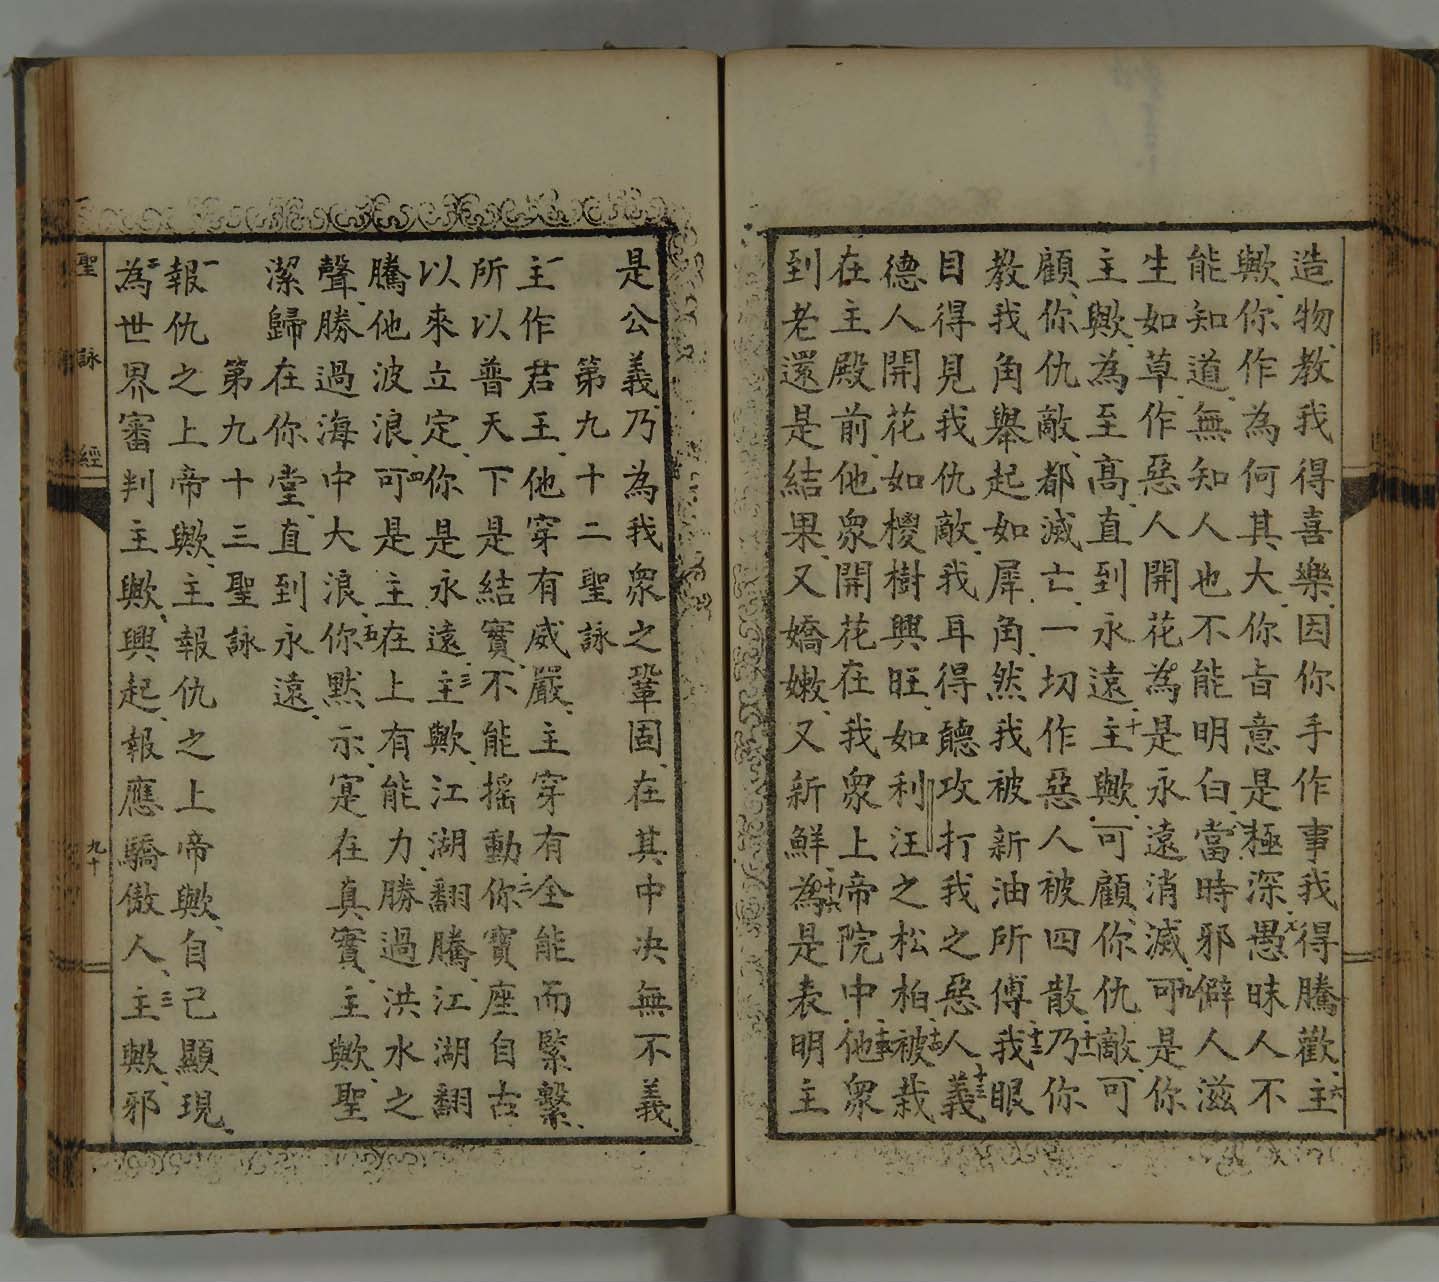 造物、教我得喜樂、因你手作事我得騰歡、六主
歟、你作為何其大、你旨意是極深、七愚昧人不
能知道、無知人也不能明白、八當時邪僻人滋
生如草、作惡人開花、為是永遠消滅、九可是你
主歟、為至高、直到永遠、十主歟、可顧、你仇敵、可
顧、你仇敵、都滅亡、一切作惡人被四散、十一乃你
教我角舉起如犀角、然我被新油所傅、十二我眼
目得見我仇敵、我耳得聽攻打我之惡人、十三義
德人開花如椶樹、興旺如利汪之松柏、十四被栽
在主殿前、他衆開花在我衆上帝院中、十五他衆
到老還是結果、又嬌嫩、又新鮮、十六為是表明主
是公義、乃為我衆之鞏固、在其中决無不義、
第九十二聖詠
一主作君王、他穿有威嚴、主穿有全能而緊繫、
所以普天下是結實、不能搖動、二你寶座自古
以來立定、你是永遠、三主歟、江湖翻騰、江湖翻
騰他波浪、四可是主在上有能力、勝過洪水之
聲、勝過海中大浪、五你默示寔在真實、主歟、聖
潔歸在你堂、直到永遠、
第九十三聖詠
一報仇之上帝歟、主報仇之上帝歟、自己顯現、
二為世界審判主歟、興起、報應驕傲人、三主歟、邪
聖詠經
九十